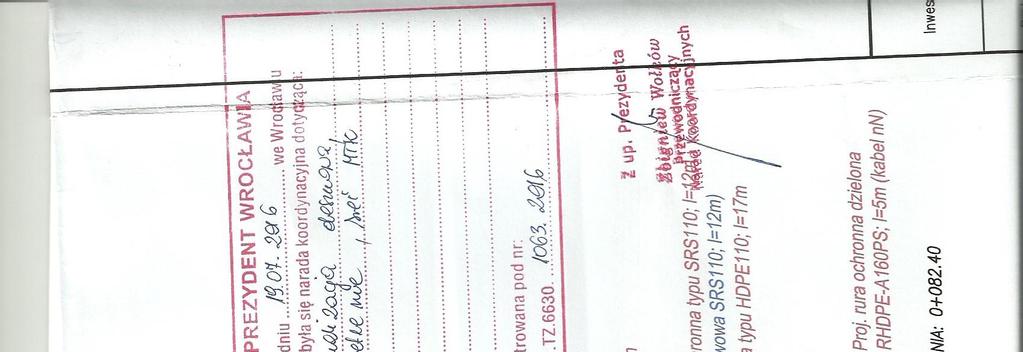 PREZYDENT WROCŁAWIA
dniu 19.07.2016 we Wrocławiu
była się narada koordynacyjna dotycząca:
deszczowa,
sieć MTK
trowana pod nr:
.TZ.6630. 1063.2016
Z up. Prezydenta
Zbigniew Wołków
Przewodniczący
Narad Koordynacyjnych
ronna typu SRS110; l=12m)
wowa SRS110; l=12m)
a typu HDPE110; l=17m
Proj. rura ochronna dzielona
RHDPE-A160PS; l=5m (kabel nN)
NIA: 0+082.40
Inwes